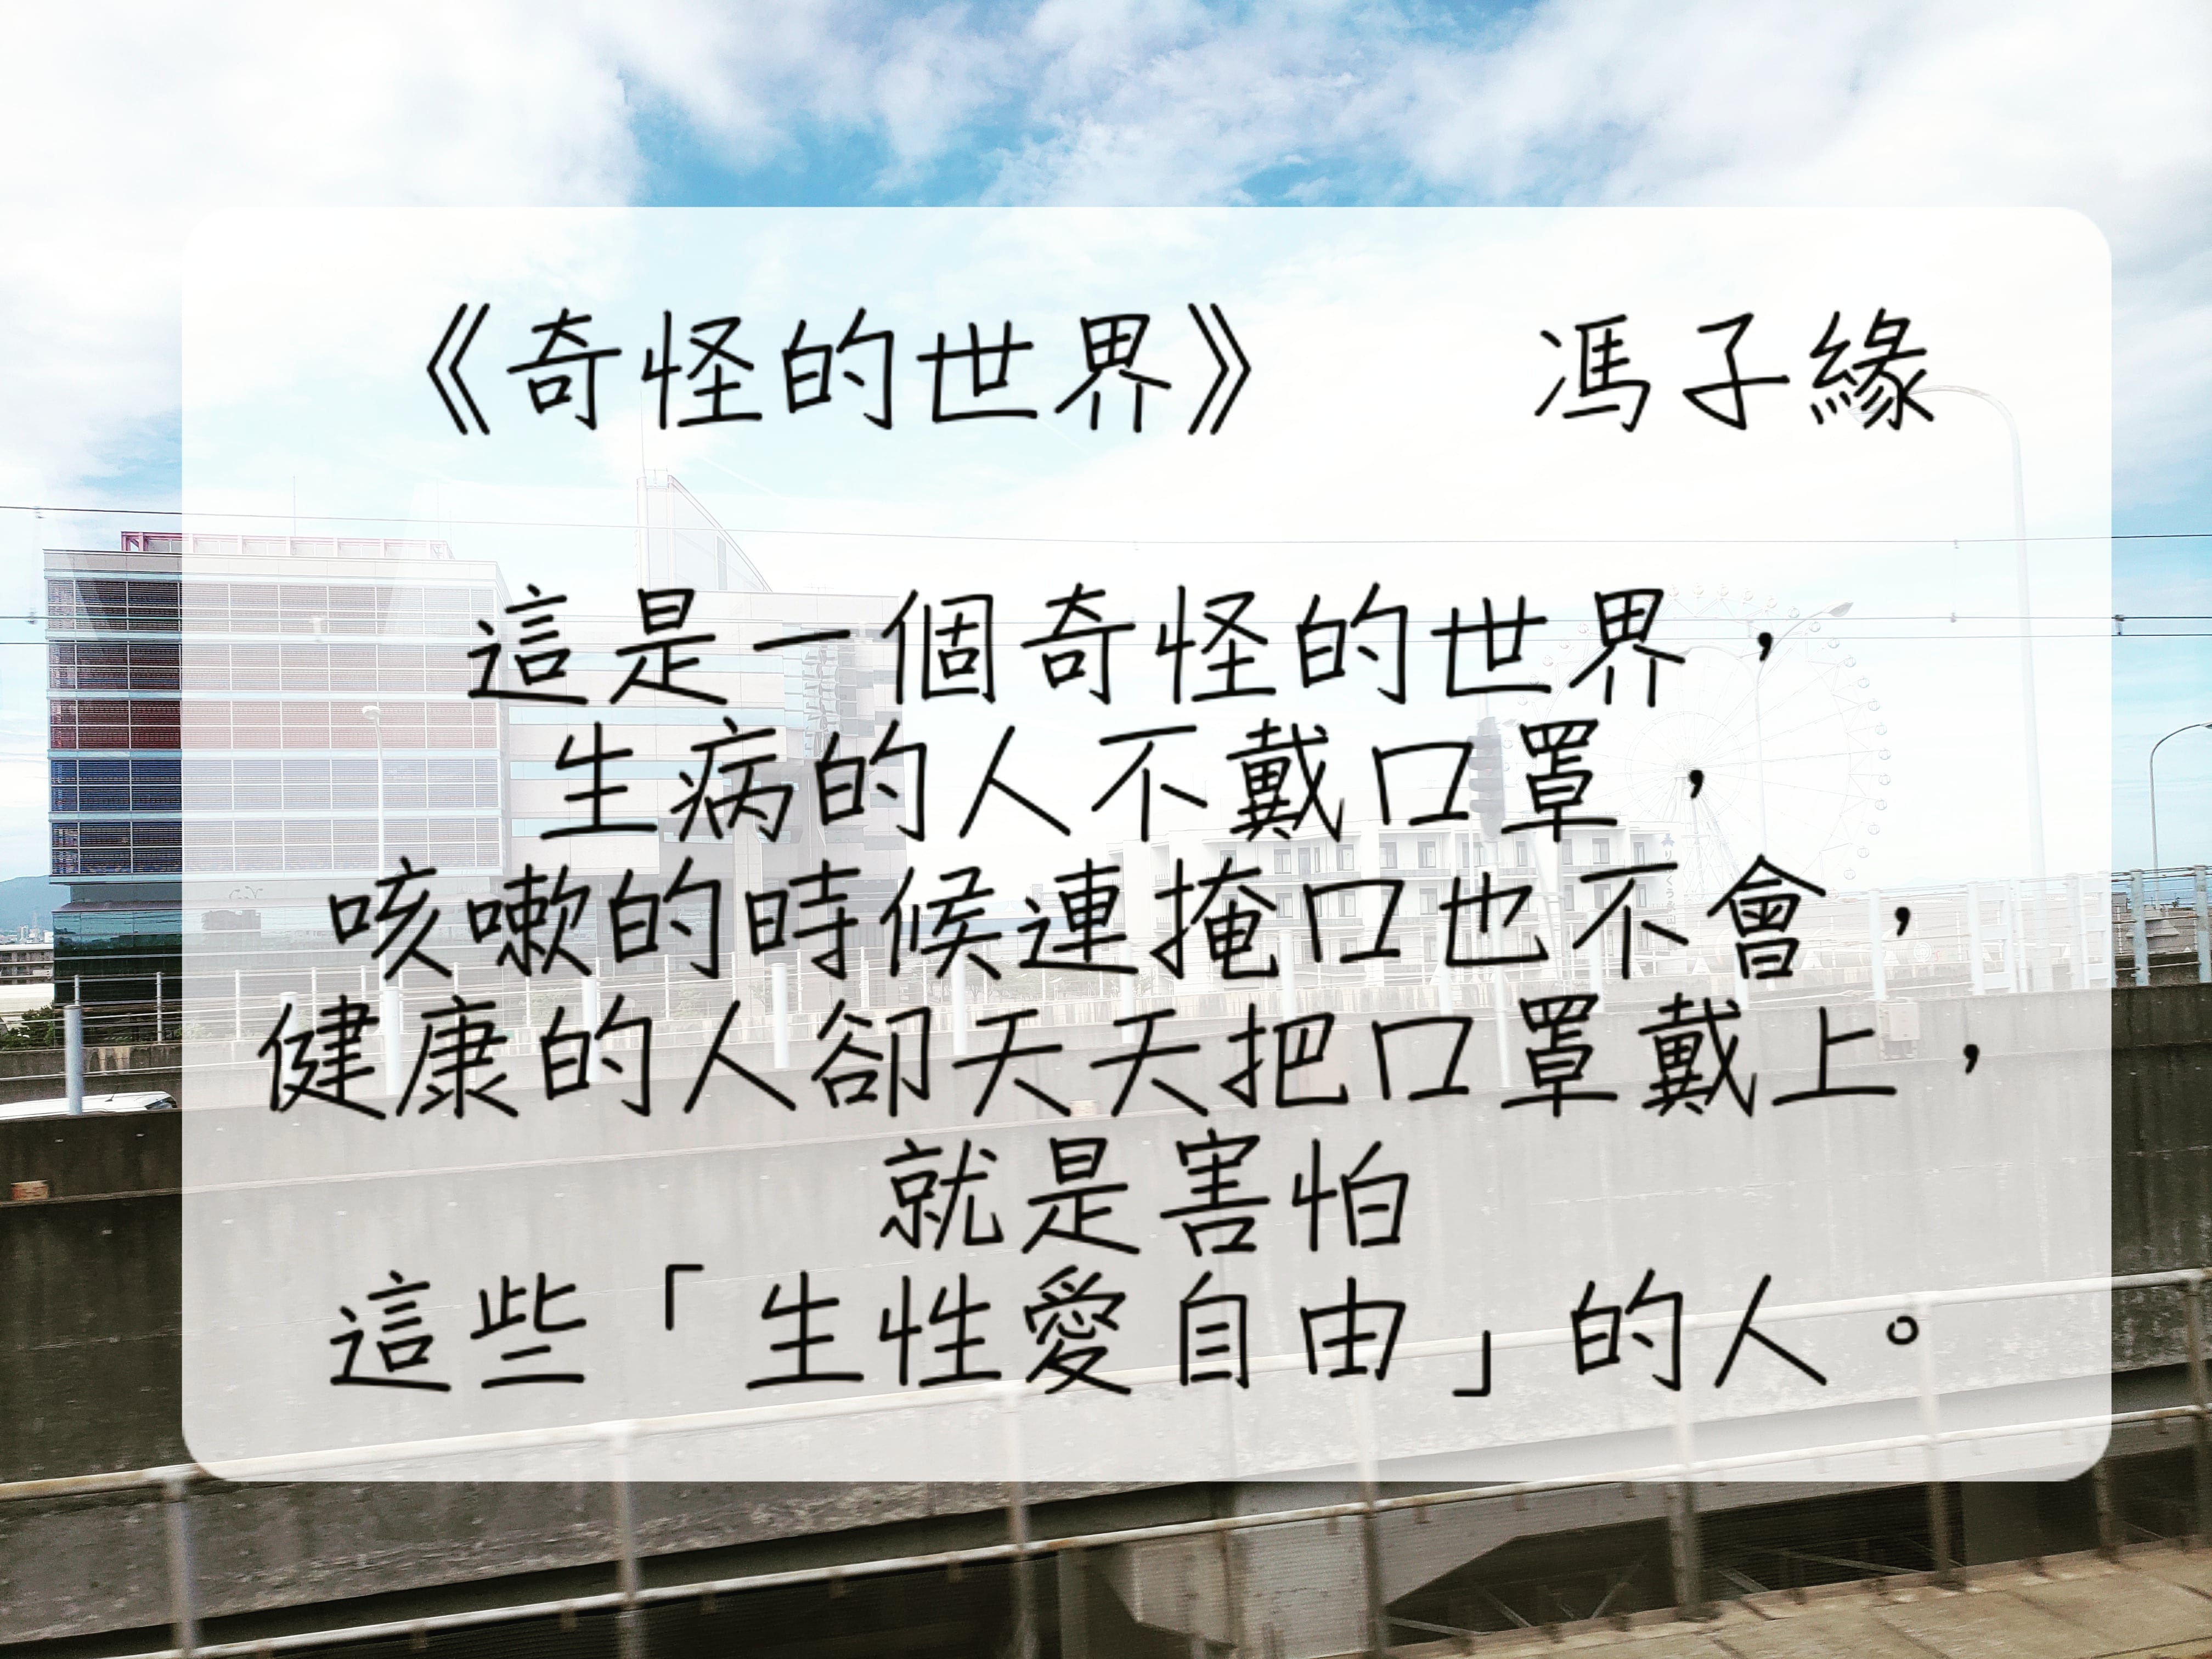 《奇怪的世界》 馮子緣
這是一個奇怪的世界，
生病的人不戴口罩，
咳嗽的時候連掩口也不會，
健康的人卻天天把口罩戴上，
就是害怕
這些「生性愛自由」的人。